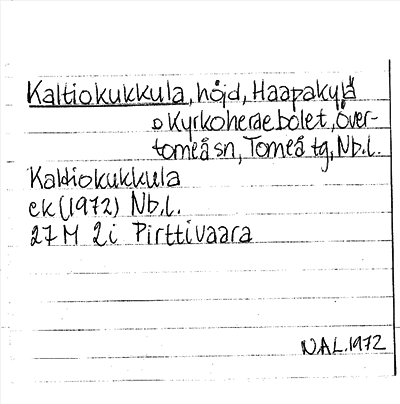 Kaltiokukkula, höjd, Haapakylä
o Kyrkoherdebolet, Över-
torneå sn, Torneå tg, Nb.l.
Kaldiokukkula
ek (1972) Nb.l.
27 M 2i Pirttivaara
NAL.1972